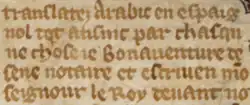 translate; Arabic en espaig
nol tot ainsint par chasqu
ne chose ie Bonauenture de
sene notaire et escriuen nr̄e
seignour le Roy deuant no